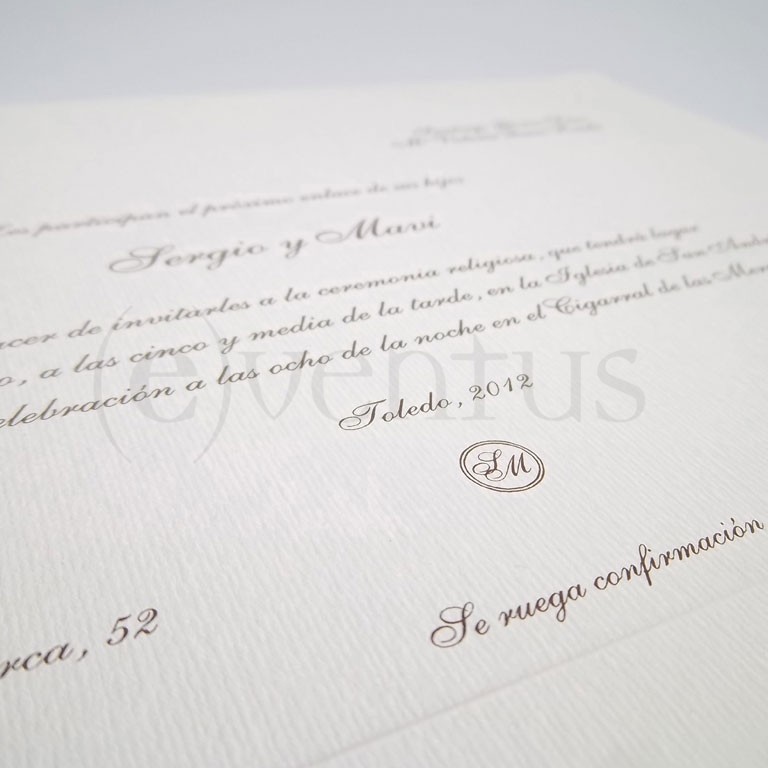 participan el próximo enlace de sus hijos
Sergio y Mavi
de invitarles a la ceremonia religiosa, que tendrá lugar
a las cinco y media de la tarde, en la Iglesia de San
celebración a las ocho de la noche en el Cigarral de las
(e)ventus
Toledo, 2012
SM
Se ruega confirmación
52